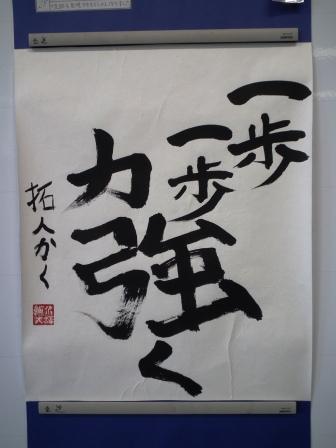 一歩
一歩
力強く
拓人かく